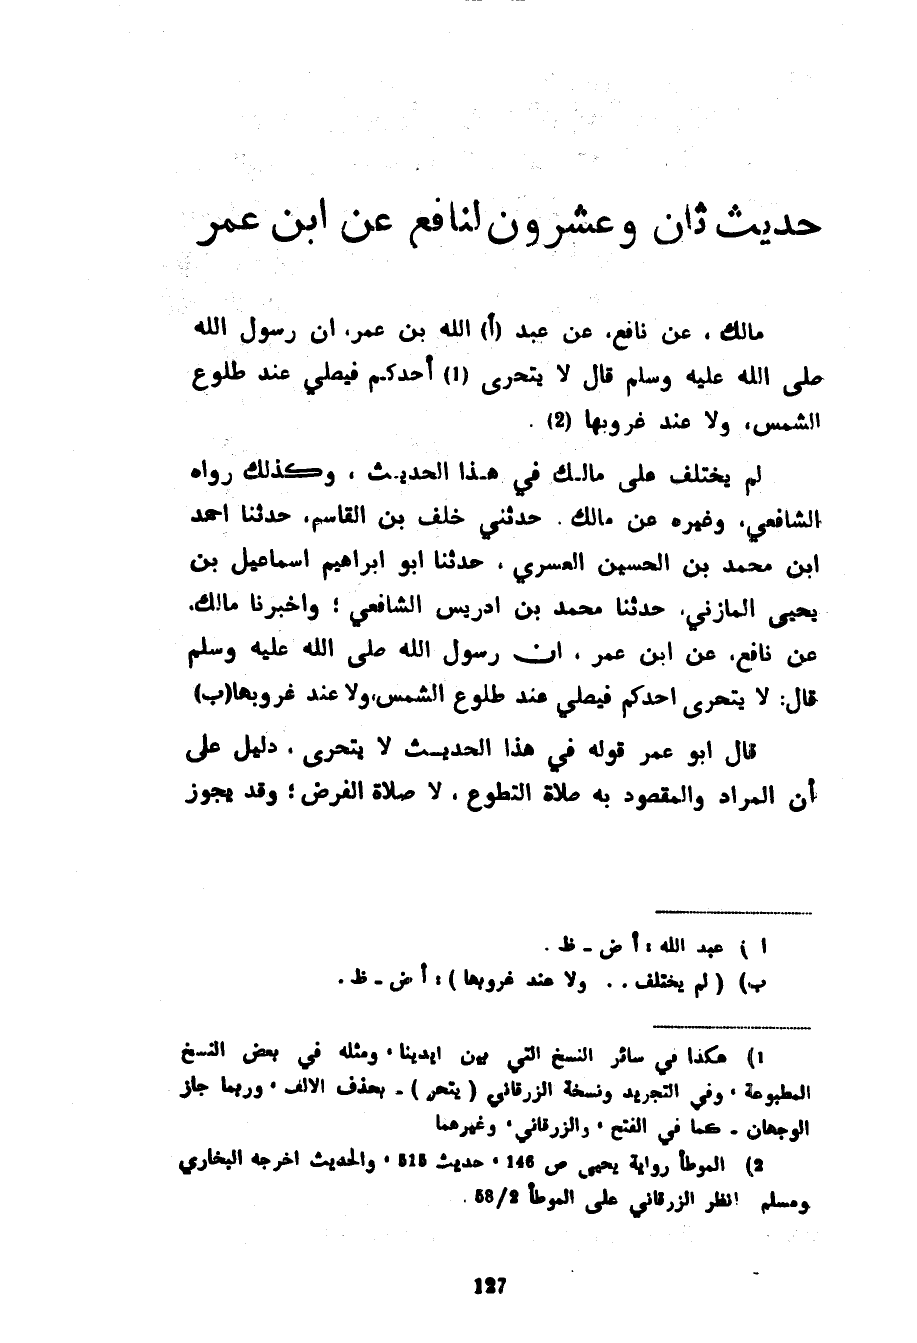 حديث ثان وعشرون لنافع عن ابن عمر
مالك ، عن نافع، عن عبد (أ) الله بن عمر، ان رسول الله
صلى الله عليه وسلم قال لا يتحرى (1) أحدكم فيصلي عند طلوع
الشمس، ولا عند غروبها (2) .
لم يختلف على مالك في هذا الحديث ، وكذلك رواه
الشافعي، وغيره عن مالك . حدثني خلف بن القاسم، حدثنا احمد
ابن محمد بن الحسين العسري ، حدثنا ابو ابراهيم اسماعيل بن
يحيى المازني، حدثنا محمد بن ادريس الشافعي ؛ واخبرنا مالك،
عن نافع، عن ابن عمر ، ان رسول الله صلى الله عليه وسلم
قال: لا يتحرى احدكم فيصلي عند طلوع الشمس،ولا عند غروبها(ب)
قال ابو عمر قوله في هذا الحديث لا يتحرى ، دليل على
أن المراد والمقصود به صلاة التطوع ، لا صلاة الفرض ؛ وقد يجوز
ا ) عبد الله : أ ض ـ ظ .
ب) ( لم يختلف . . ولا عند غروبها ) : أ ض ـ ظ .
1) هكذا في سائر النسخ التي بين ايدينا ، ومثله في بعض النسخ
المطبوعة ، وفي التجريد ونسخة الزرقاني ( يتحر ) ـ بحذف الالف ، وربما جاز
الوجهان ـ كما في الفتح ، والزرقاني، وغيرهما
2) الموطأ رواية يحيى ص 146 ، حديث 515 ، والحديث اخرجه البخاري
ومسلم انظر الزرقاني على الموطأ 58/2 .
127